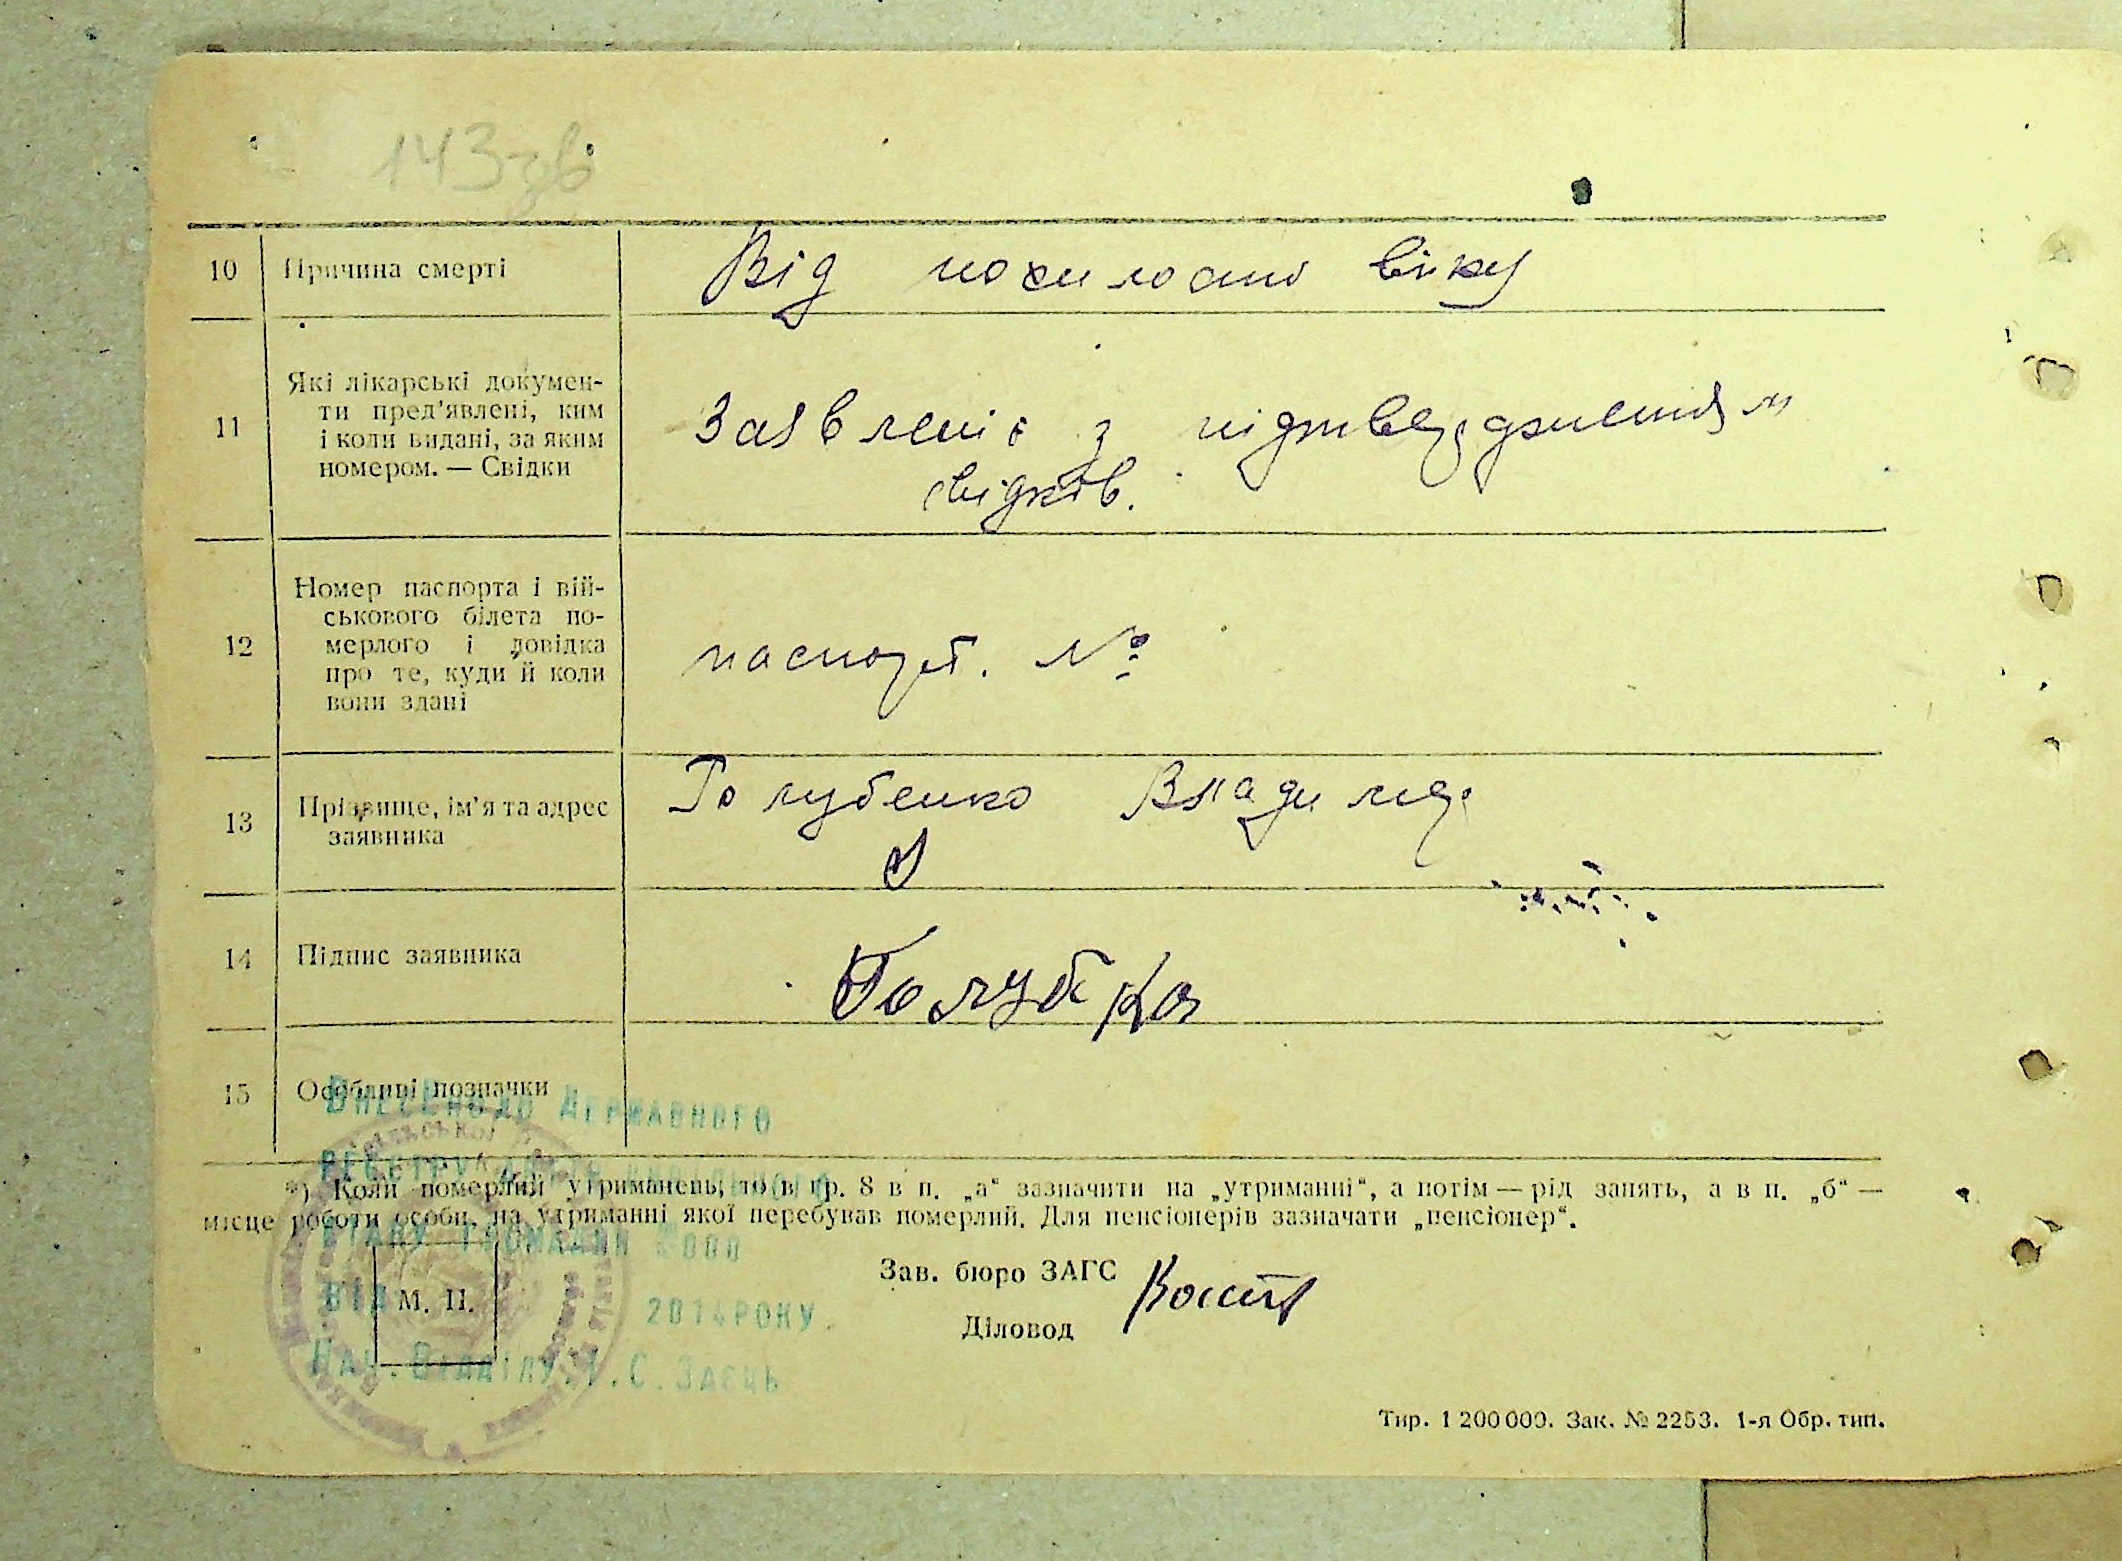 143 зв
10 Причина смерті Від похилости віку
11 Які лікарські докумен-
ти пред’явлені, ким
і коли видані, за яким
номером. — Свідки
Заявленіє з підтвердженням
свідків.
12 Номер паспорта і вій-
ськового білета по-
мерлого і довідка
про те, куди й коли
вони здані
паспорт. №
13 Прізвище, ім’я та адрес
заявника
Голубенко Владимир
14 Підпис заявника
15 Особливі позначки
Внесено до Державного
реєстру актів цивільного
стану громадян
від 2014 року.
Нач. Відділу С. Заєць
*) Коли померлий утриманець, то в гр. 8 в п. „а“ зазначити на „утриманні“, а потім — рід занять, а в п. „б“ —
місце роботи особи, на утриманні якої перебував померлий. Для пенсіонерів зазначати „пенсіонер“.
М. П.
Зав. бюро ЗАГС
Діловод
Тир. 1 200 000. Зак. № 2253. 1-я Обр. тип.